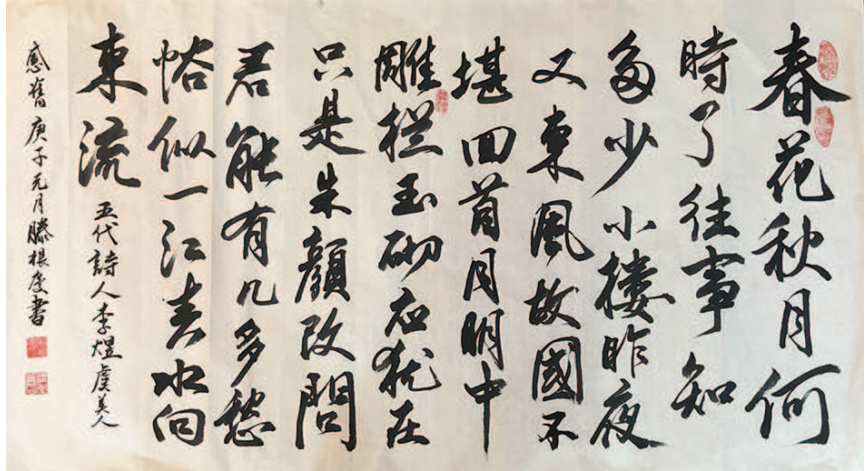 春花秋月何
時了往事知
多少小樓昨夜
又東風故國不
堪回首月明中
雕栏玉砌应犹在
只是朱顔改問
君能有几多愁
恰似一江春水向
東流
五代詩人李煜虞美人
感舊庚子元月滕根書